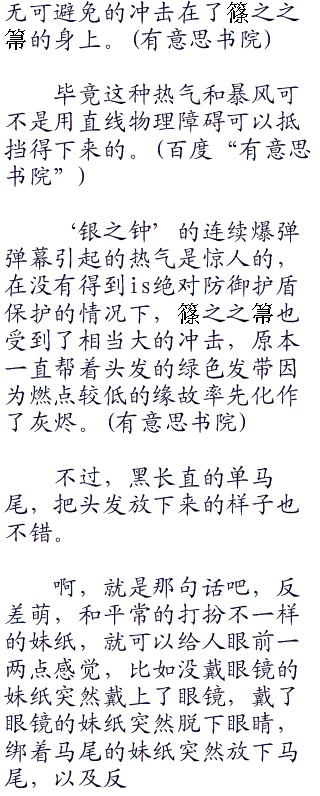 无可避免的冲击在了篠之之
箒的身上。(有意思书院)
毕竟这种热气和暴风可
不是用直线物理障碍可以抵
挡得下来的。(百度“有意思
书院”)
‘银之钟’的连续爆弹
弹幕引起的热气是惊人的，
在没有得到is绝对防御护盾
保护的情况下，篠之之箒也
受到了相当大的冲击，原本
一直帮着头发的绿色发带因
为燃点较低的缘故率先化作
了灰烬。(有意思书院)
不过，黑长直的单马
尾，把头发放下来的样子也
不错。
啊，就是那句话吧，反
差萌，和平常的打扮不一样
的妹纸，就可以给人眼前一
两点感觉，比如没戴眼镜的
妹纸突然戴上了眼镜，戴了
眼镜的妹纸突然脱下眼睛，
绑着马尾的妹纸突然放下马
尾，以及反